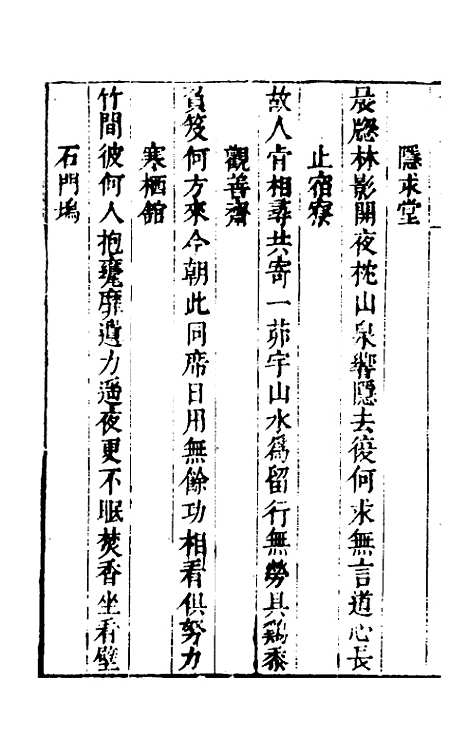 隱求堂
晨牕林影開夜枕山泉響隱去復何求無言道心長
止宿寮
故人肯相尋共寄一茆宇山水爲留行無勞具鷄黍
觀善齋
負笈何方來今朝此同席日用無餘功相看俱努力
寒栖舘
竹間彼何人抱甕靡遺力遥夜更不眠焚香坐看壁
石門塢